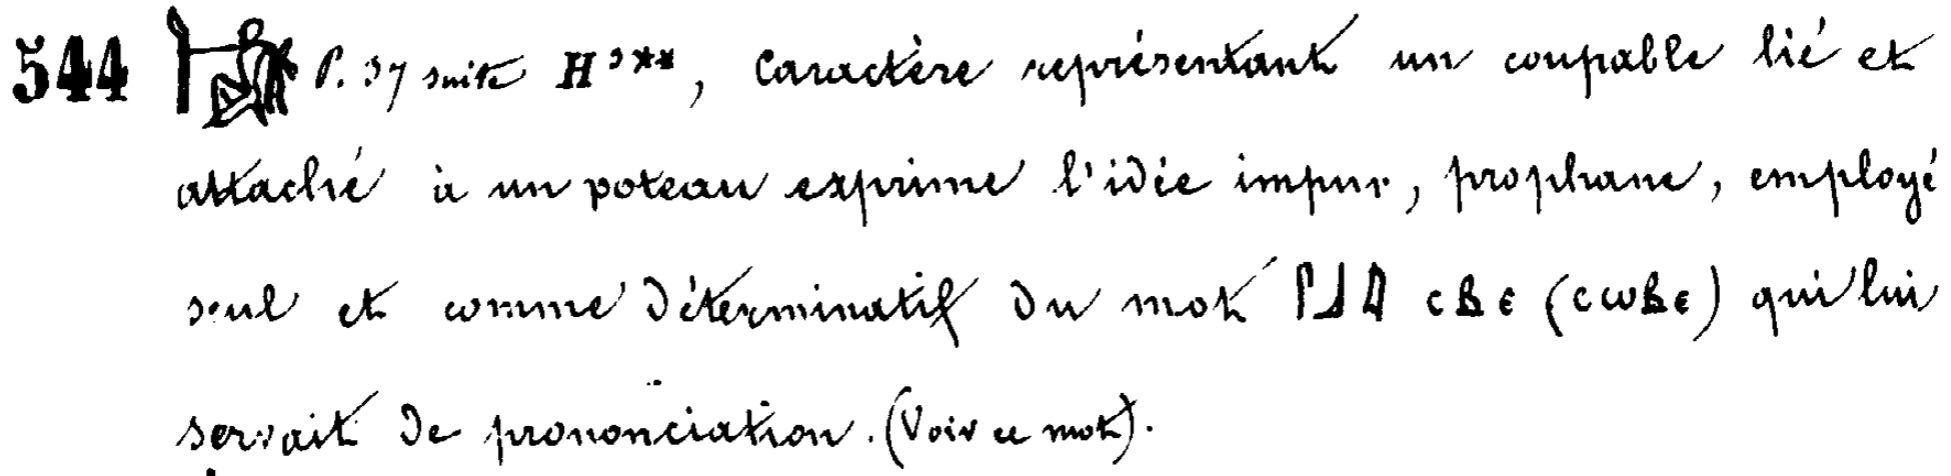 544 P. 37 suite H³**, Caractère représentant un coupable lié et
attaché à un poteau exprime l'idée impur, prophane, employé
seul et comme déterminatif du mot 𓋴𓃀𓈎 ⲥⲃⲉ (ⲥⲱⲃⲉ) qui lui
servait de prononciation. (Voir ce mot).